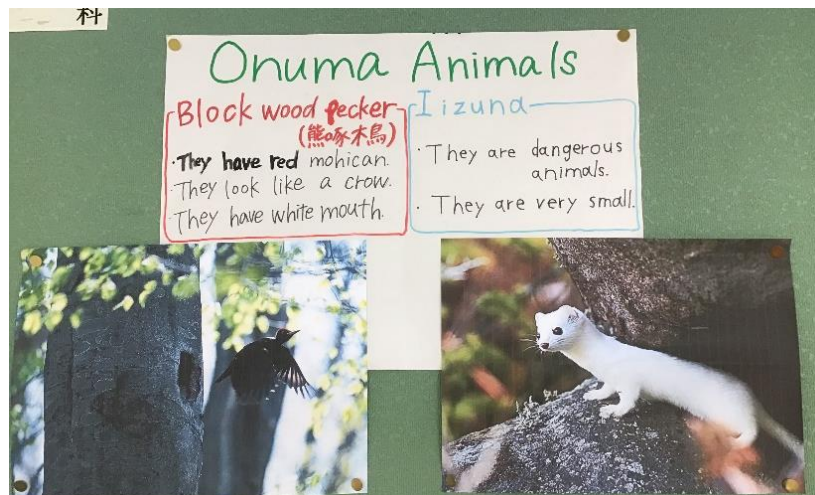 科
Onuma Animals
Block wood pecker
(熊啄木鳥)
・They have red mohican.
・They look like a crow.
・They have white mouth.
Iizuna
・They are dangerous
animals.
・They are very small.